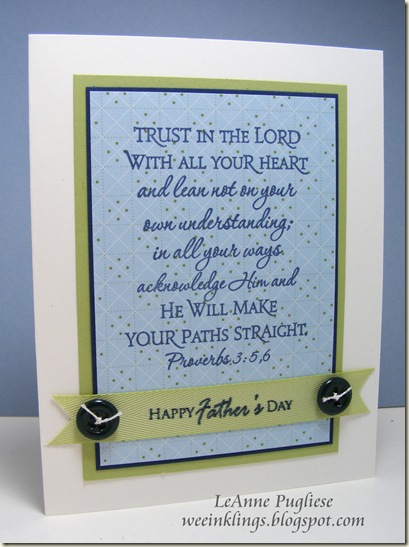 TRUST IN THE LORD
WITH ALL YOUR HEART
and lean not on your
own understanding;
in all your ways
acknowledge Him and
HE WILL MAKE
YOUR PATHS STRAIGHT.
Proverbs 3:5,6
HAPPY Father's DAY
LeAnne Pugliese
weeinklings.blogspot.com